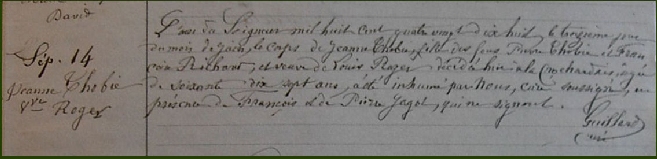 David
Sép. 14
Jeanne Thobie
Vve Roger
L'an du Seigneur mil huit cent quatre vingt dix huit, le troisième jour
du mois de Juin, le corps de Jeanne Thobie, fille des feus Pierre Thobie et Fran
çoise Richard, et veuve de Louis Roger décédée hier à la Méchandais, âgée
de soixante dix sept ans, a été inhumé par Nous, curé soussigné, en
présence de François et de Pierre Jagot, qui ne signent.
Guillet
curé